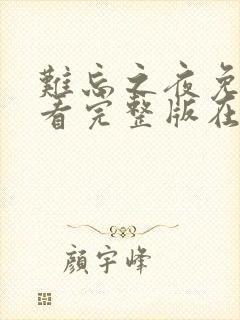 難忘之夜免
看完整版在
顏宇峰